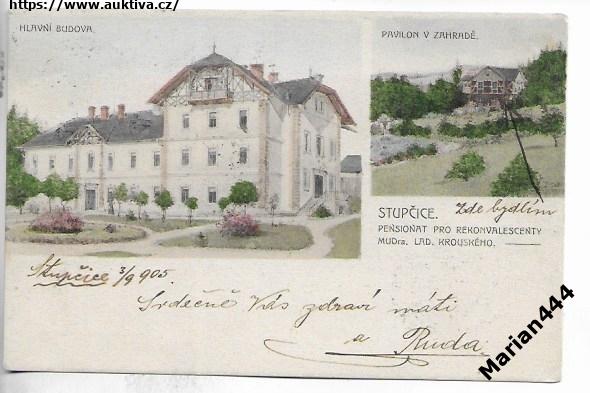 https://www.auktiva.cz/
HLAVNÍ BUDOVA.
PAVILON V ZAHRADĚ.
STUPČICE. Zde bydlím
PENSIONAT PRO REKONVALESCENTY
MUDra. LAD. KROUSKÉHO.
Stupčice 3/9 905.
Srdečně Vás zdraví máti
a Ruda.
Marian444